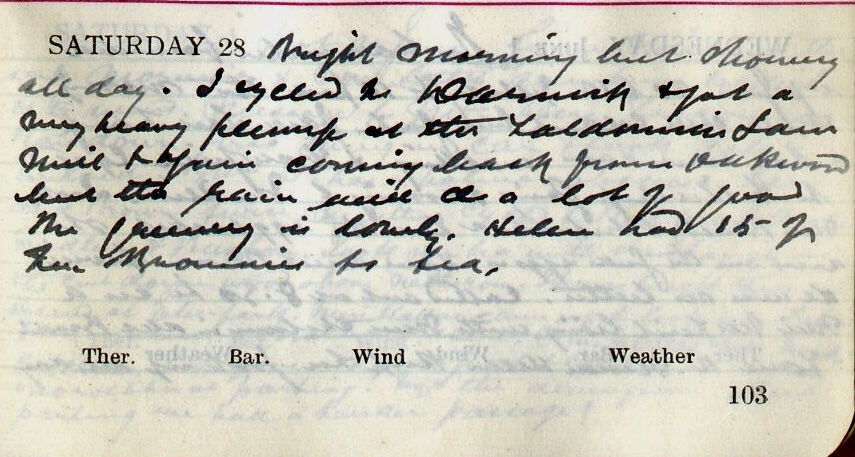 SATURDAY 28 Bright morning but showery
all day. I cycled to Darnick & got a
very heavy plump at the Saw
Mill & again coming back from Oakwood
but the rain will do a lot of good
The greenery is lovely. Helen had 15 of
her Brownies to tea.
Ther. Bar. Wind Weather
103